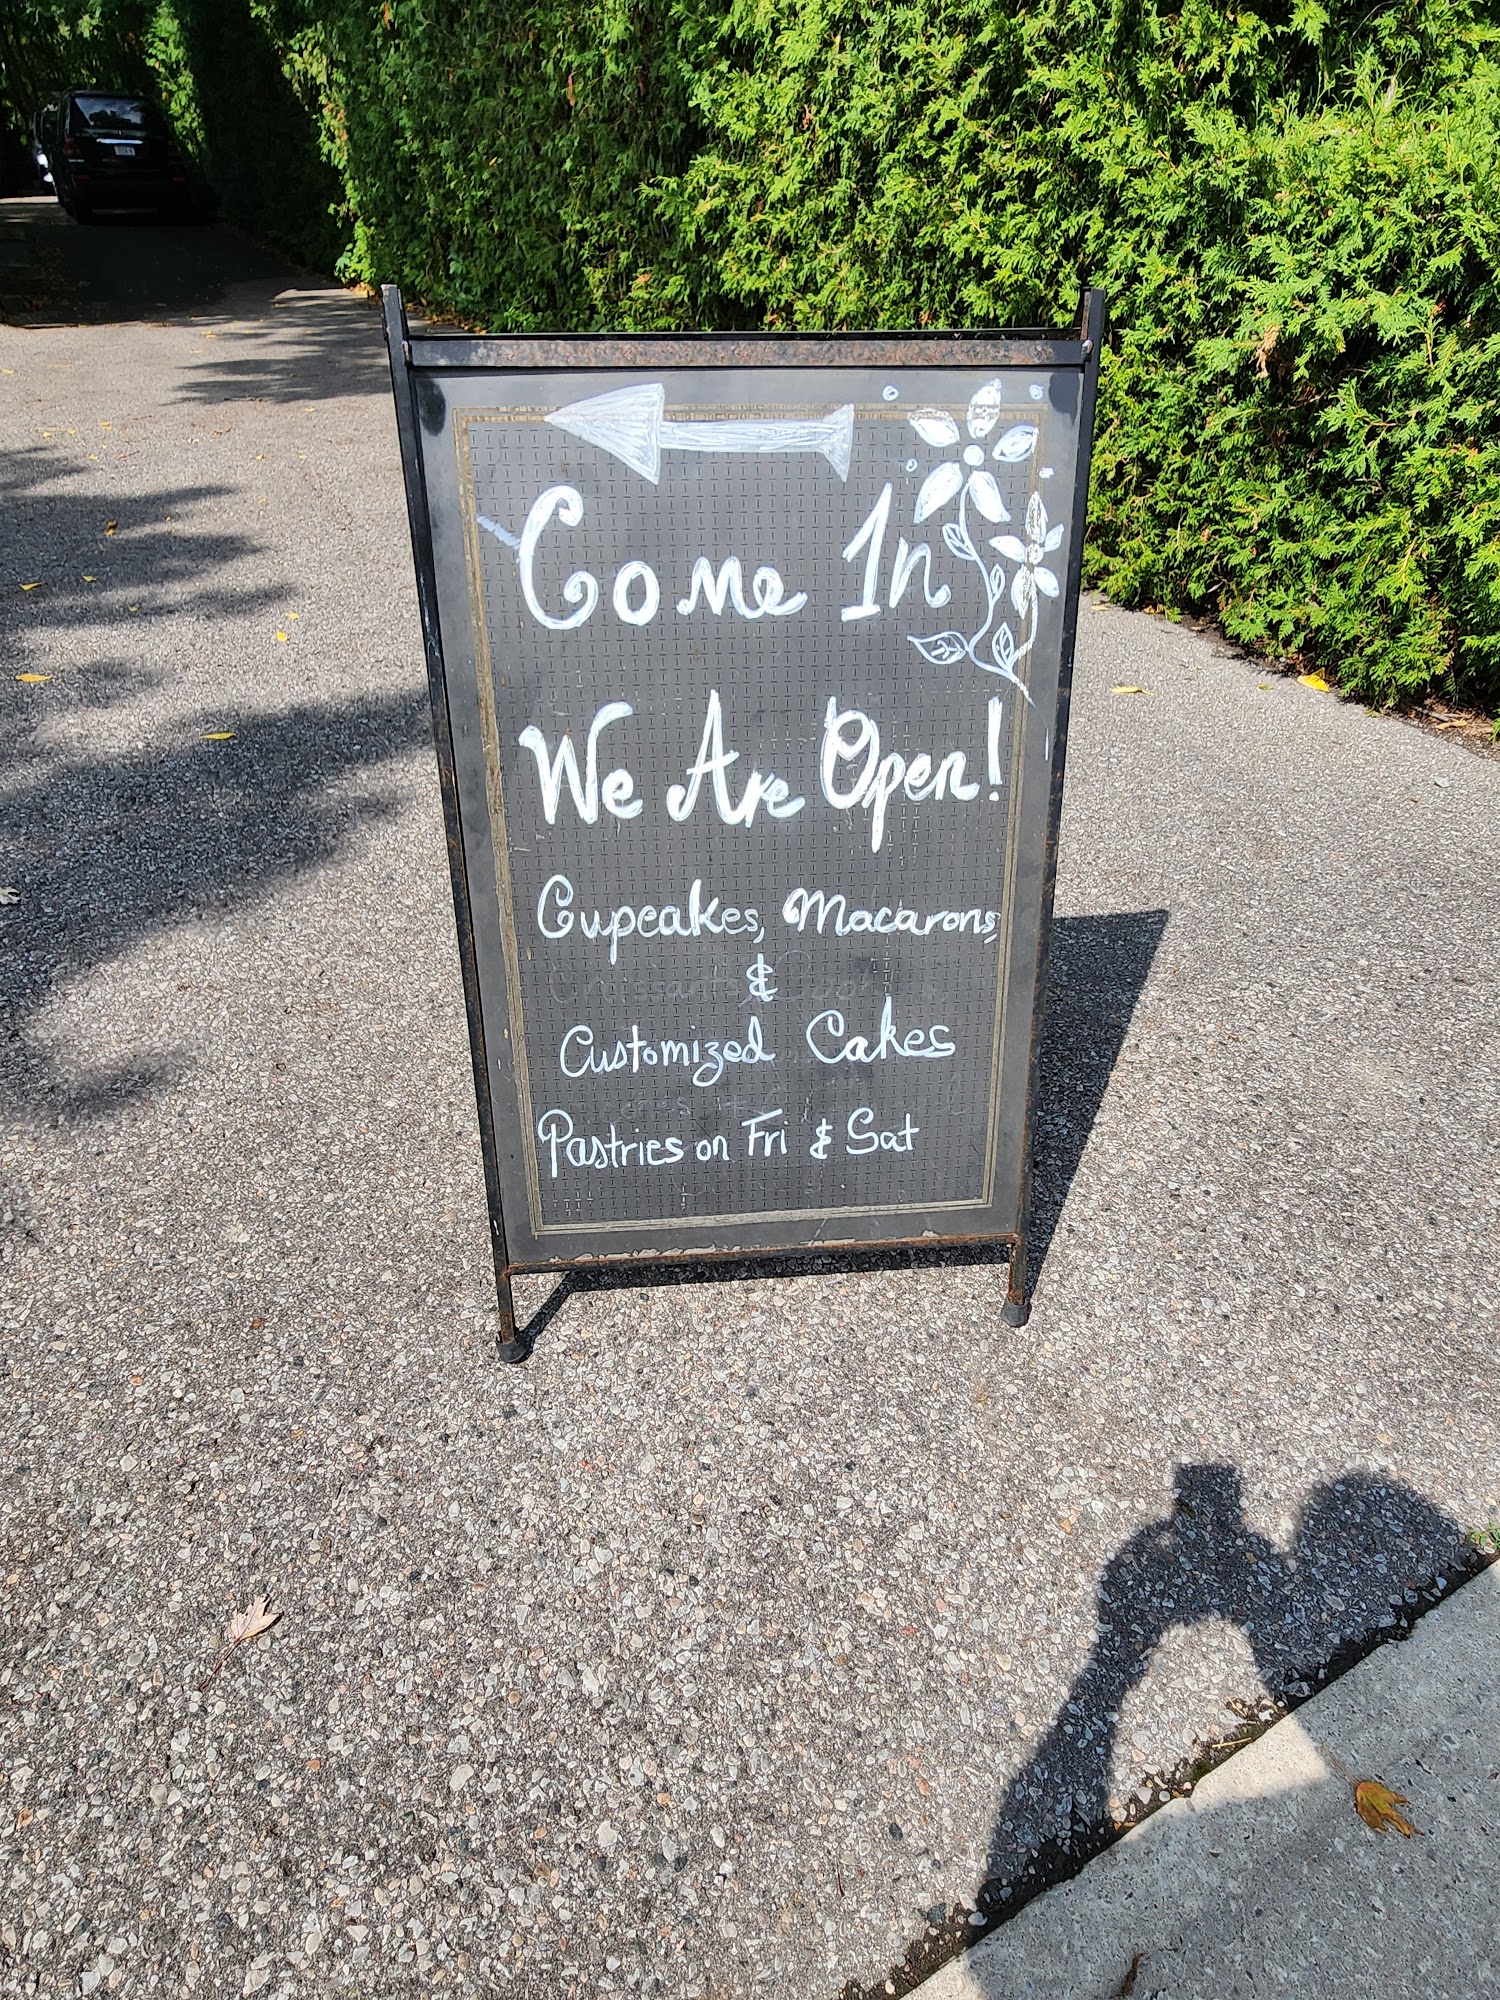 Come In
We Are Open!
Cupcakes, Macarons,
&
Customized Cakes
Pastries on Fri & Sat